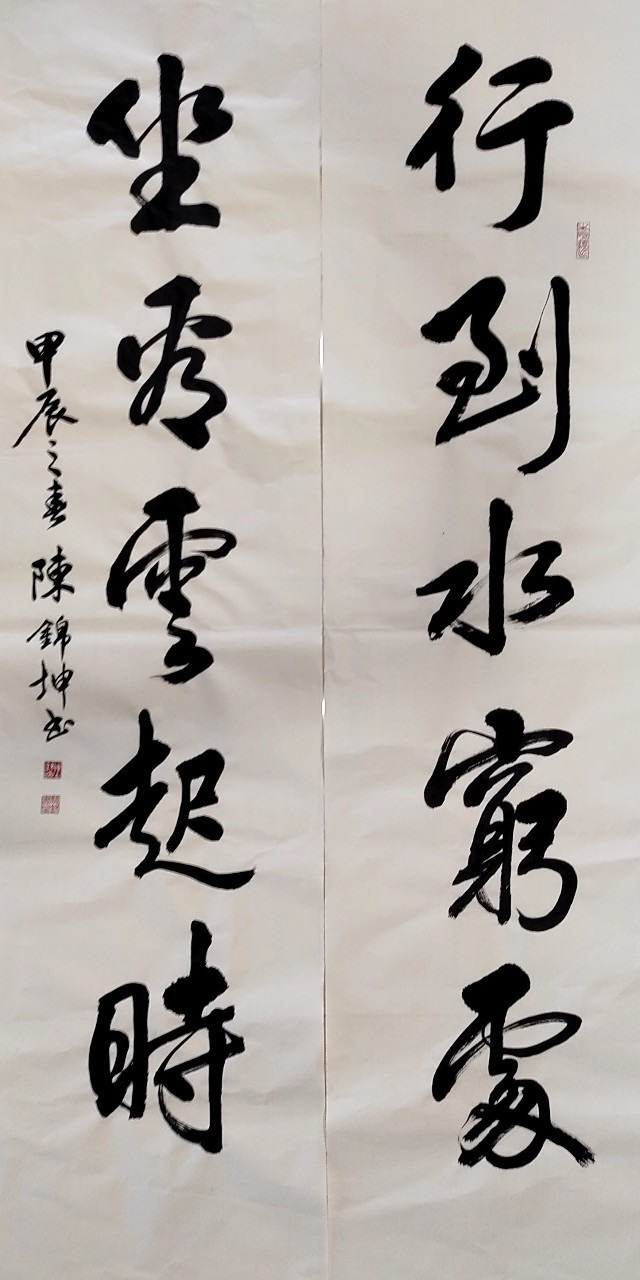 行到水窮處
坐看雲起時
甲辰之春 陳錦坤書